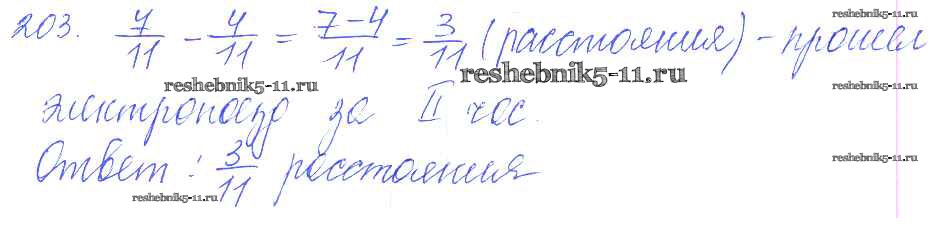 203. 7/11 - 4/11 = 7-4/11 = 3/11 (расстояния) - прошел
reshebnik5-11.ru
reshebnik5-11.ru
reshebnik5-11.ru
электропоезд за II час.
Ответ: 3/11 расстояния
reshebnik5-11.ru
reshebnik5-11.ru